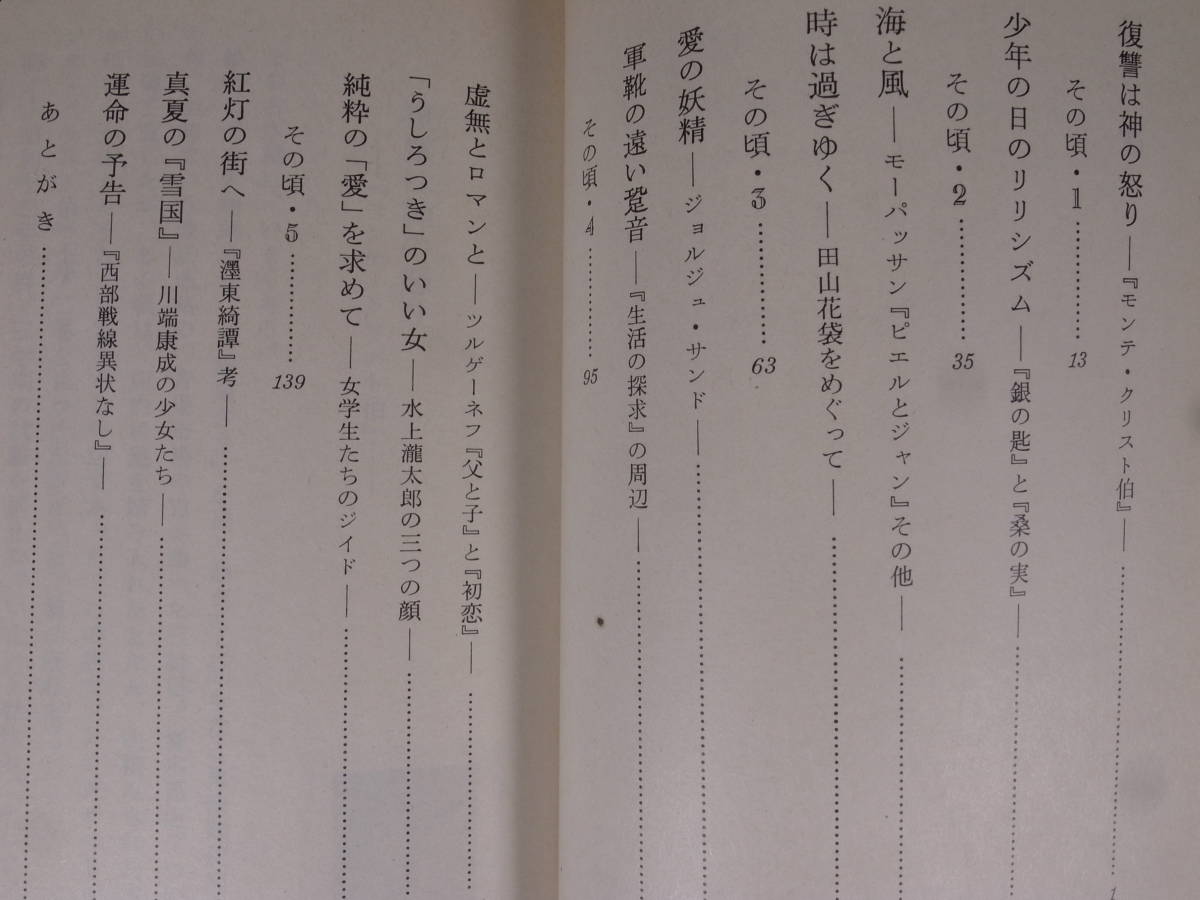 復讐は神の怒り――『モンテ・クリスト伯』――…………
その頃・1…………13
少年の日のリリシズム――『銀の匙』と『桑の実』――…………
その頃・2…………35
海と風――モーパッサン『ピエルとジャン』その他――…………
時は過ぎゆく――田山花袋をめぐって――…………
その頃・3…………63
愛の妖精――ジョルジュ・サンド――…………
軍靴の遠い跫音――『生活の探求』の周辺――…………
その頃・4…………95
虚無とロマンと――ツルゲーネフ『父と子』と『初恋』――…………
「うしろつき」のいい女――水上瀧太郎の三つの顔――…………
純粋の「愛」を求めて――女学生たちのジイド――…………
その頃・5…………139
紅灯の街へ――『濹東綺譚』考――…………
真夏の『雪国』――川端康成の少女たち――…………
運命の予告――『西部戦線異状なし』――…………
あとがき…………